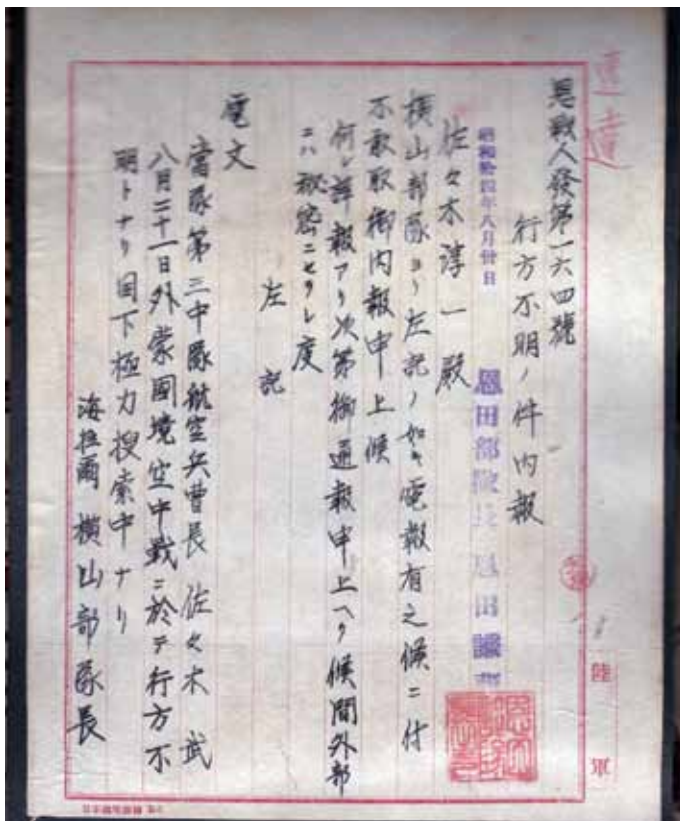 速達
恩戰人發第一六四號
行方不明ノ件内報
昭和拾四年八月廿日
恩田部隊長 恩田謙
佐々木淳一殿
横山部隊ヨリ左記ノ如ク電報有之候ニ付
不敢取御内報申上候
何レ詳報アリ次第御通報申上ヘク候間外部
ニハ秘密ニセラレ度
左記
電文
當隊第三中隊航空兵曹長 佐々木 武
八月二十一日外蒙國境空中戰ニ於テ行方不
明トナリ目下極力搜索中ナリ
海拉爾 横山部隊長
陸軍